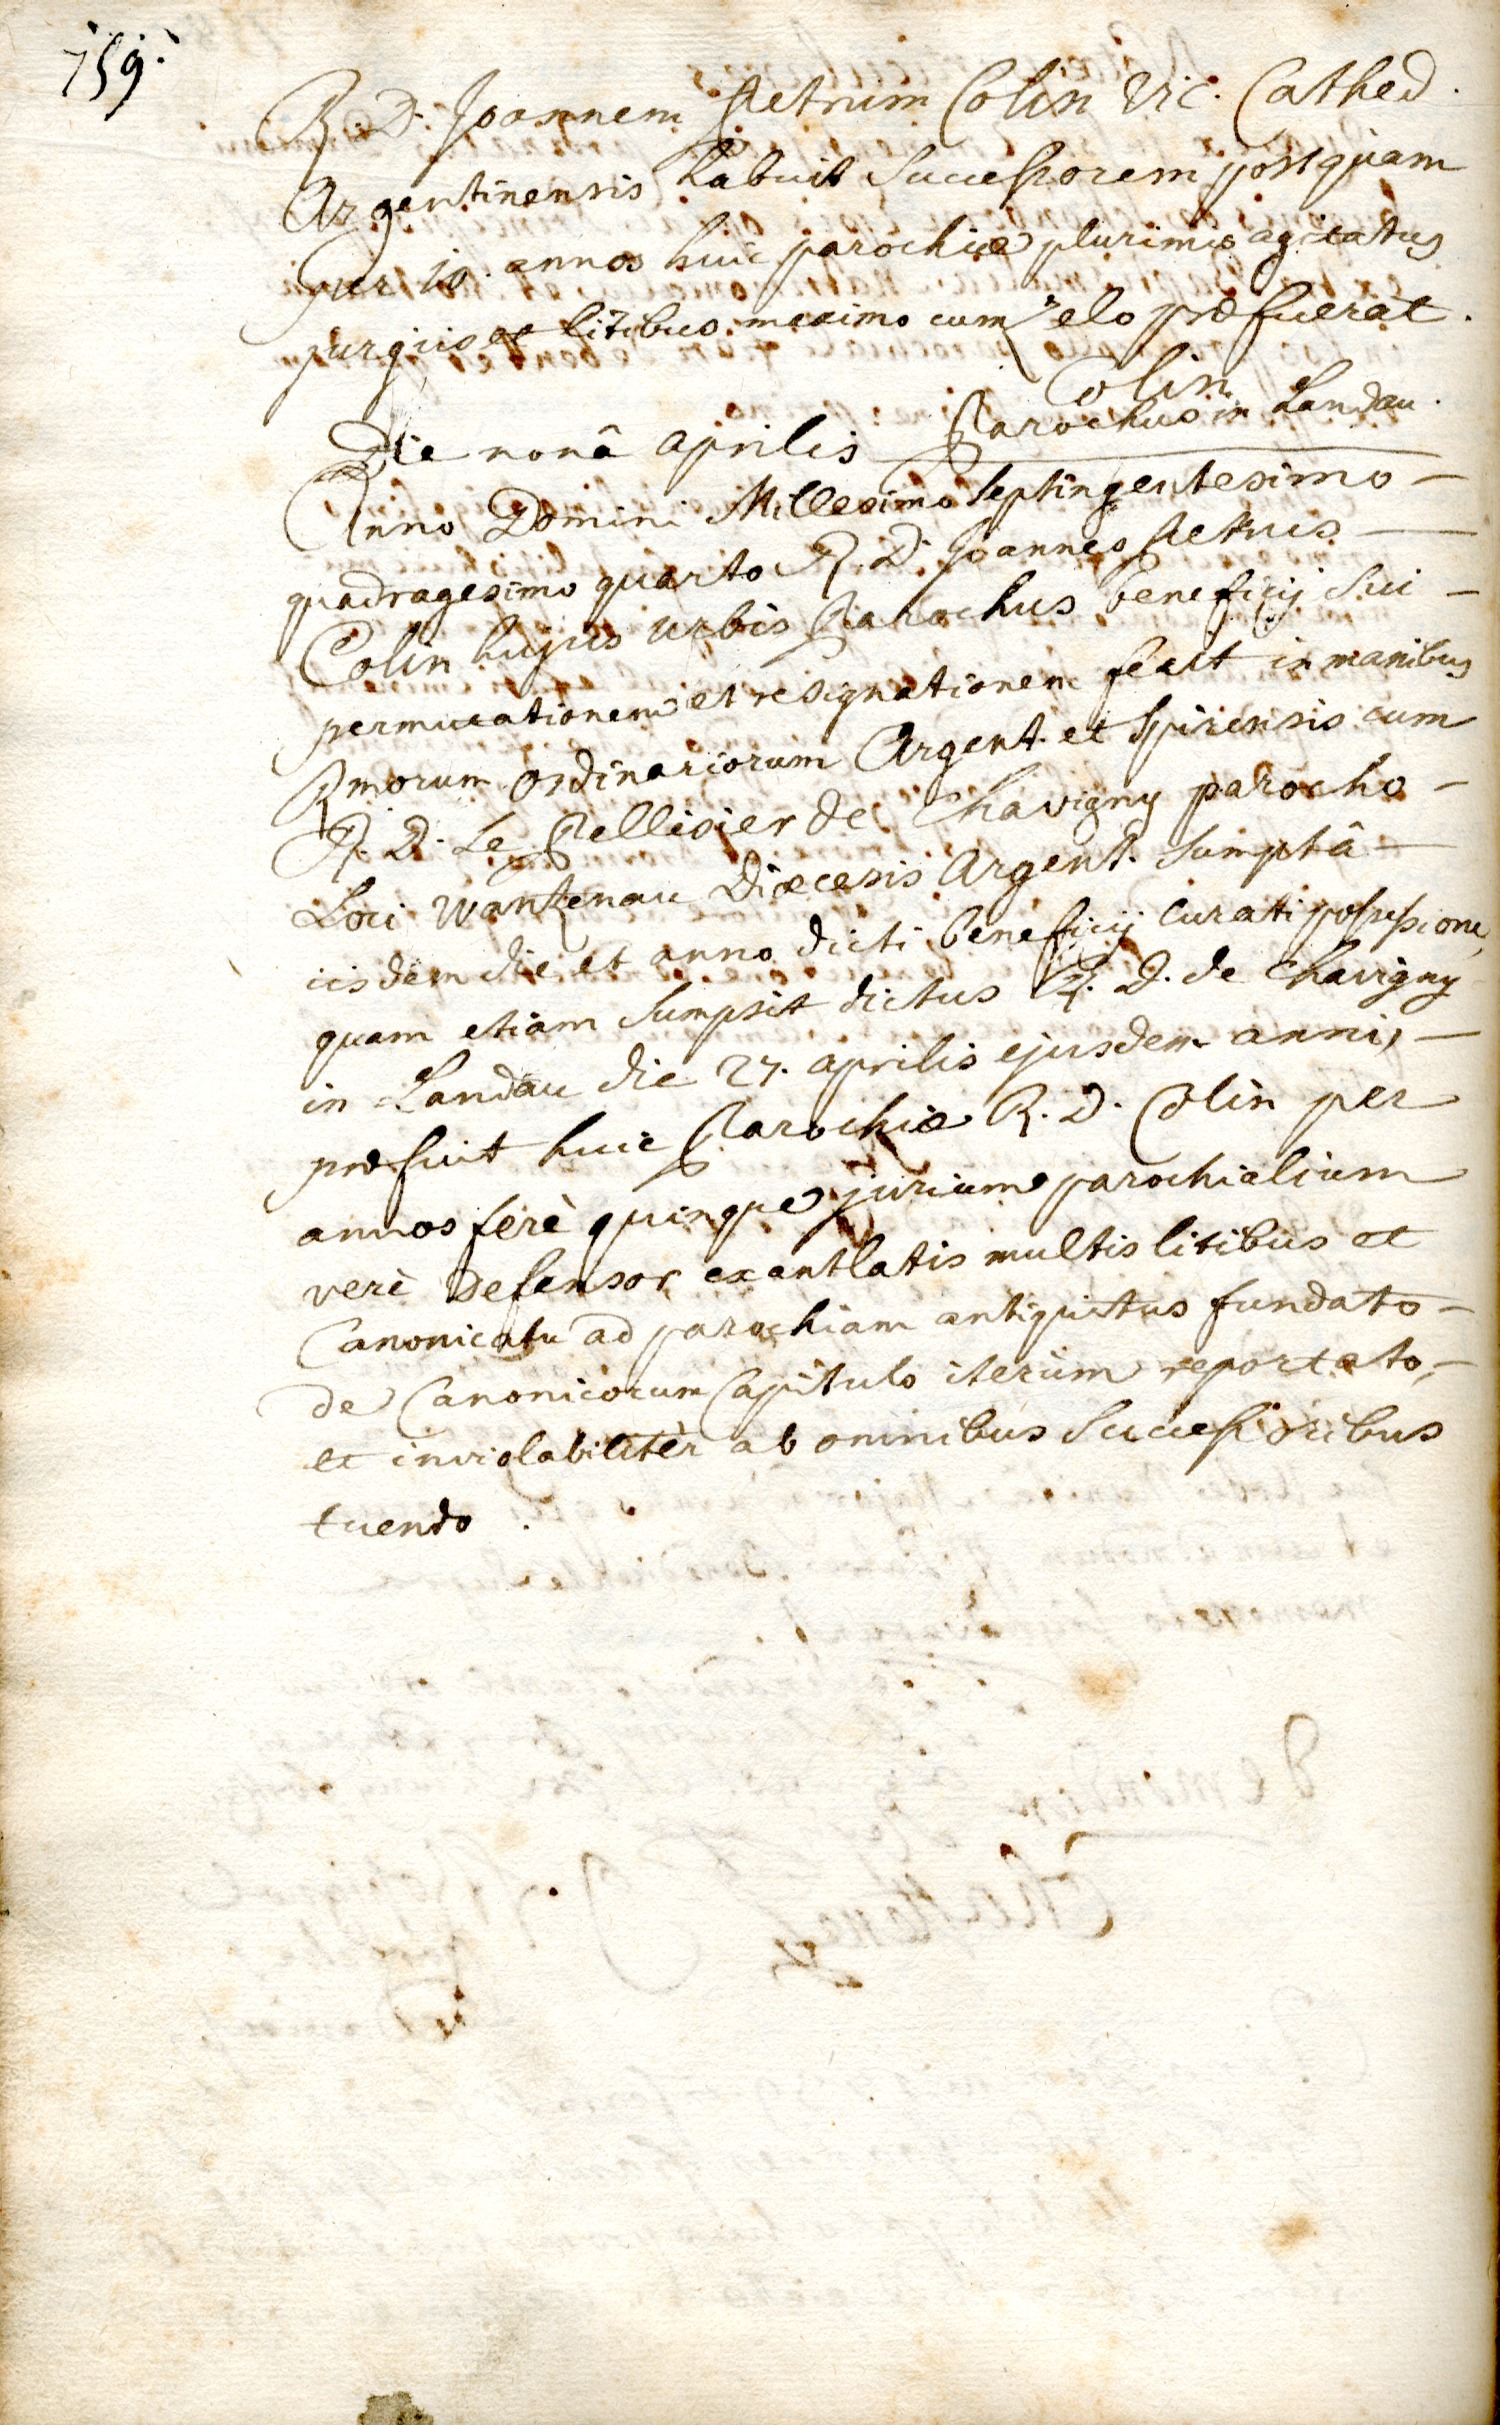 759.
R. D. Joannem Petrum Colin Vic. Cathed.
Argentinensis habuit Successorem postquam
per 10. annos huic parochiæ plurimis agitatus
jurgiis et litibus maximo cum zelo præfuerat.
Colin
Parochus in Landau.
Die nonâ aprilis
Anno Domini Millesimo Septingentesimo –
quadragesimo quarto R. D. Joannes Petrus –
Colin hujus urbis Parochus beneficij Sui –
permutationem et resignationem fecit in manibus
Rmorum ordinariorum Argent. et Spirensis cum
R. D. Le Pellisier de Chavigny parocho –
Loci Wantzenau Diœcesis Argent. Sumptâ –
iisdem die et anno dicti beneficij Curati possessione,
quam etiam Sumpsit dictus R. D. de Chavigny
in Landau die 27. aprilis ejusdem anni, –
præfuit huic Parochiæ R. D. Colin per
annos ferè quinque jurium parochialium
verè Defensor exantlatis multis litibus et
Canonicatu ad parochiam antiquitus fundato –
de Canonicorum Capitulo iterùm reportato, –
et inviolabilitèr ab omnibus Successoribus
tuendo.